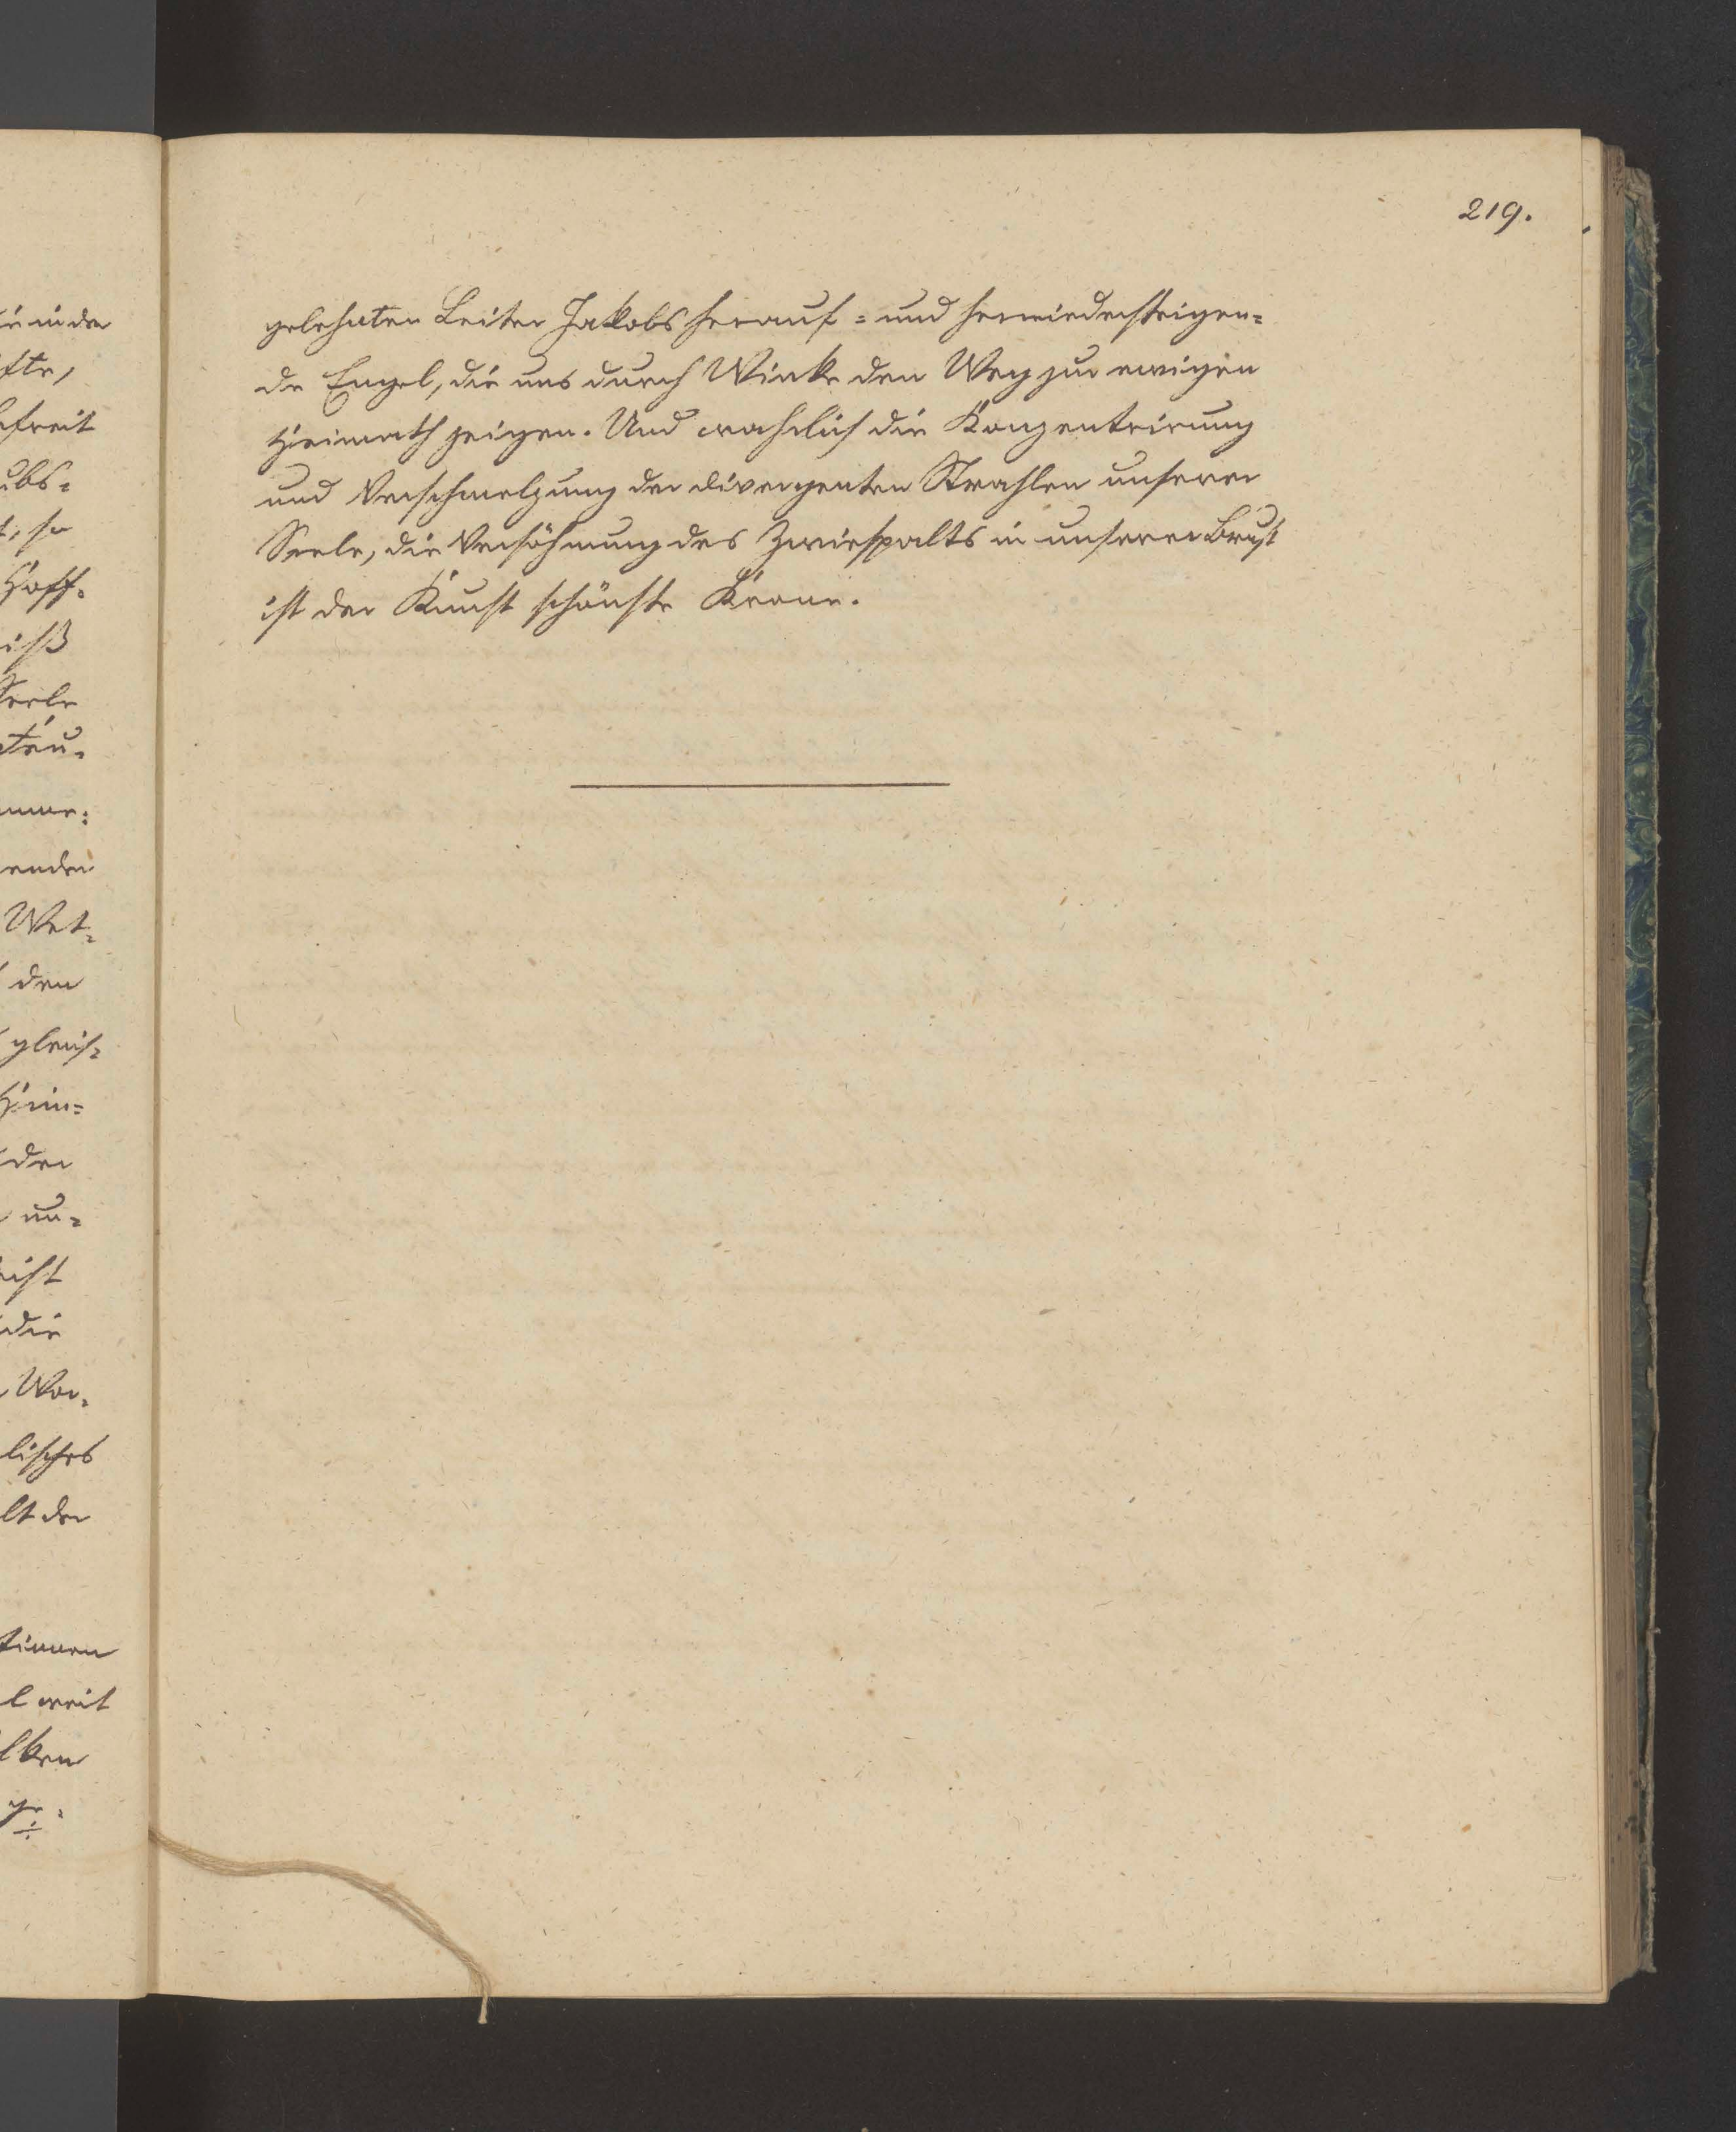 219.
gelehnten Leiter Jakobs herauf= und herniedersteigen=
de Engel, die uns durch Winke den Weg zur ewigen
Heimath zeigen. Und wahrlich die Konzentrirung
und Verschmelzung der divergenten Strahlen unserer
Seele, die Versöhnung des Zwiespalts in unserer Brust
ist der Kunst schönste Krone.